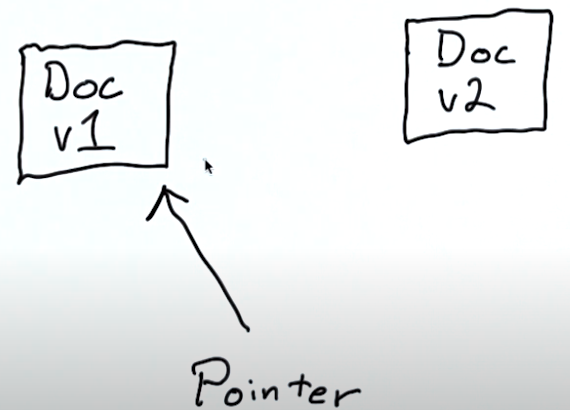 Doc
v1
Doc
v2
Pointer